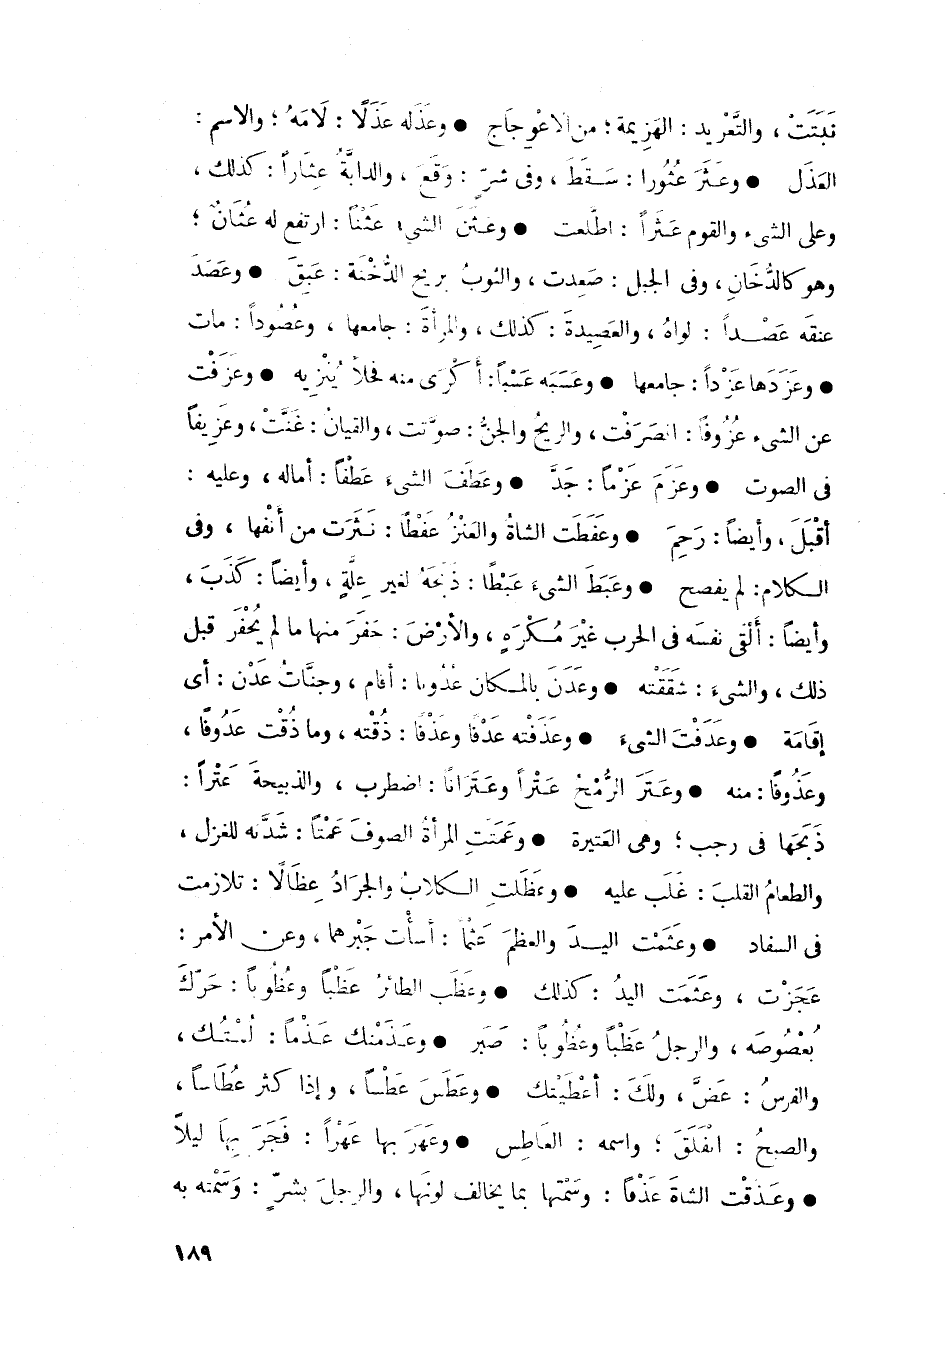 نَبَتَتْ ، والتَّعْرِيد : الهَزِيمة ؛ من الاعْوِجَاج ● وعَذَله عَذَلًا : لَامَهُ ؛ والاسم :
العَذَل ● وعَثَرَ عُثُورا : سَقَطَ ، وفى شرٍّ : وَقَعَ ، والدابَّةُ عِثاراً : كذلك ،
وعلى الشىء والقوم عَثَراً : اطَّلعت ● وعَثَنَ الشىء عَثْناً : ارتفع له عُثَانٌ ؛
وهو كالدُّخَانِ ، وفى الجبل : صَعِدت ، والثوبُ بريح الدُّخْنَة : عَبِقَ ● وعَصَدَ
عنقَه عَصْداً : لواهُ ، والعَصِيدةَ : كذلك ، والمرأةَ : جامعها ، وعُصُوداً : مات
● وعَزَدَها عَزْداً : جامعها ● وعَسَبَه عَسْباً : أَكْرَى منه فحلاً يُنْزِيه ● وعَزَفْت
عن الشىء عُزُوفاً : انصَرَفْت ، والريحُ والجنُّ : صوَّتت ، والقيانُ : غَنَّتْ ، وعَزِيفاً
فى الصوت ● وعَزَمَ عزْماً : جَدَّ ● وعَطَفَ الشىءَ عَطْفاً : أماله ، وعليه :
أقْبَلَ ، وأيضاً : رَحِمَ ● وعَفَطَت الشاةُ والعَنْزُ عَفْطًا : نَثَرَت من أَنْفها ، وفى
الكلام : لم يفصح ● وعَبَطَ الشىءَ عَبْطًا : ذَبَحَهُ لغير عِلَّةٍ ، وأيضاً : كَذَبَ ،
وأيضاً : أَلْقى نفسَه فى الحرب غيْرَ مُكْرَهٍ ، والأرْضَ : حَفرَ منها ما لم يُحْفَر قبل
ذلك ، والشىءَ : شقَقْته ● وعَدَنَ بالمكان عُدُونا : أقام ، وجنَّاتُ عَدْن : أى
إقَامَة ● وعَدَفْتَ الشىءَ ● وعَذَفْته عَدْفًا وعَذْفًا : ذُقْته ، وما ذُقْت عَدُوفًا ،
وعَذُوفًا : منه ● وعَتَرَ الرُّمْحُ عَتْراً وعَتَرَانًا : اضطرب ، والذبيحةَ عَتْراً :
ذَبَحَها فى رجب ؛ وهى العَتيرة ● وعَمَتَتِ المرأةُ الصوفَ عَمْتاً : شَدَّته للغزل ،
والطعامُ القلبَ : غَلَب عليه ● وعَظَلتِ الكلابُ والجرَادُ عِظَالًا : تلازمت
فى السفاد ● وعثَمْت اليدَ والعظمَ عَثْما : أسأْت جَبْرهما ، وعن الأمر :
عَجَزْت ، وعَثَمَت اليدُ : كذلك ● وعَظَب الطائرُ عَظْباً وعُظُوباً : حَرّكَ
بُعْصُوصَه ، والرجلُ عَظْباً وعُظُوباً : صَبَر ● وعَذَمْتك عَذْماً : لُمْتُك ،
والفرسُ : عَضَّ ، ولَكَ : أعْطَيْتك ● وعَطَسَ عَطْساً ، وإذا كثر عُطَاساً ،
والصبحُ : انْفَلَقَ ؛ واسمه : العَاطِس ● وعَهَرَ بها عَهْراً : فَجَرَ بِهاَ ليلاً
● وعَذقْت الشاةَ عَذْقاً : وسَمْتها بما يخالف لونَها ، والرجلَ بشرٍّ : وَسَمْته به
١٨٩